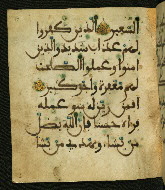 السعير الذين كفروا
لهم عذاب شديد والذين
امنوا وعملوا الصلحت
لهم مغفرة واجر كبير
افمن زين له سوء عمله
فراه حسنا فان الله يضل
من يشاء ويهدي من يشاء